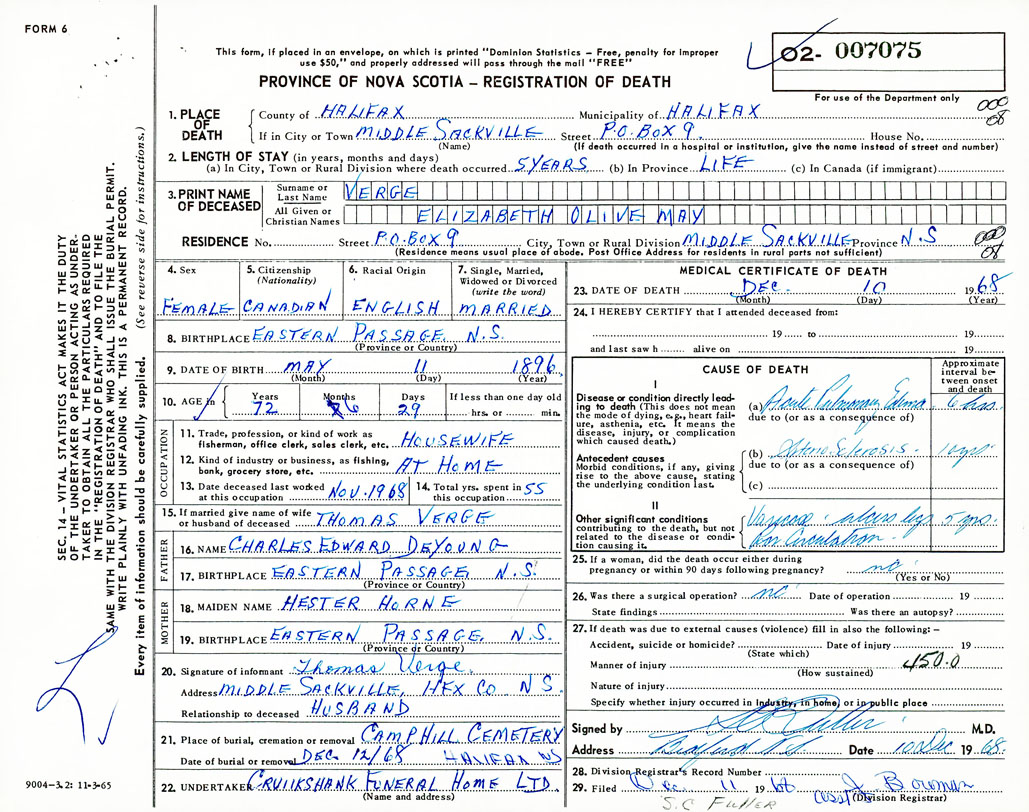 FORM 6
This form, if placed in an envelope, on which is printed "Dominion Statistics – Free, penalty for improper
use $50," and properly addressed will pass through the mail "FREE"
PROVINCE OF NOVA SCOTIA – REGISTRATION OF DEATH
02- 007075
For use of the Department only
000
08
1. PLACE OF DEATH
County of HALIFAX Municipality of HALIFAX
If in City or Town MIDDLE SACKVILLE Street P.O. BOX 9. House No.
(Name) (If death occurred in a hospital or institution, give the name instead of street and number)
2. LENGTH OF STAY (in years, months and days)
(a) In City, Town or Rural Division where death occurred 5 YEARS (b) In Province LIFE (c) In Canada (if immigrant)
3. PRINT NAME OF DECEASED
Surname or Last Name VERGE
All Given or Christian Names ELIZABETH OLIVE MAY
RESIDENCE No. Street P.O. BOX 9 City, Town or Rural Division MIDDLE SACKVILLE Province N.S
(Residence means usual place of abode. Post Office Address for residents in rural parts not sufficient)
000
08
4. Sex FEMALE
5. Citizenship (Nationality) CANADIAN
6. Racial Origin ENGLISH
7. Single, Married, Widowed or Divorced (write the word) MARRIED
8. BIRTHPLACE EASTERN PASSAGE, N.S.
(Province or Country)
9. DATE OF BIRTH MAY 11 1896
(Month) (Day) (Year)
10. AGE in Years 72 Months 6 Days 29 If less than one day old hrs. or min.
OCCUPATION
11. Trade, profession, or kind of work as fisherman, office clerk, sales clerk, etc. HOUSEWIFE
12. Kind of industry or business, as fishing, bank, grocery store, etc. AT HOME
13. Date deceased last worked at this occupation NOV. 1968
14. Total yrs. spent in this occupation 55
15. If married give name of wife or husband of deceased THOMAS VERGE
FATHER
16. NAME CHARLES EDWARD DEYOUNG
17. BIRTHPLACE EASTERN PASSAGE, N.S.
(Province or Country)
MOTHER
18. MAIDEN NAME HESTER HORNE
19. BIRTHPLACE EASTERN PASSAGE, N.S.
(Province or Country)
20. Signature of informant Thomas Verge.
Address MIDDLE SACKVILLE, HFX CO N S.
Relationship to deceased HUSBAND
21. Place of burial, cremation or removal CAMPHILL CEMETERY
Date of burial or removal DEC 12/68 HALIFAX NS
22. UNDERTAKER CRUIKSHANK FUNERAL HOME LTD.
(Name and address)
MEDICAL CERTIFICATE OF DEATH
23. DATE OF DEATH DEC. 10 1968
(Month) (Day) (Year)
24. I HEREBY CERTIFY that I attended deceased from:
19 to 19
and last saw h alive on 19
CAUSE OF DEATH
Approximate interval between onset and death
I
Disease or condition directly leading to death (This does not mean the mode of dying, e.g., heart failure, asthenia, etc. It means the disease, injury, or complication which caused death.)
(a) Acute Pulmonary Edema 6 hrs.
due to (or as a consequence of)
Antecedent causes
Morbid conditions, if any, giving rise to the above cause, stating the underlying condition last.
(b) Arterio Sclerosis 10 yrs
due to (or as a consequence of)
(c)
II
Other significant conditions contributing to the death, but not related to the disease or condition causing it.
Varicose ulcers legs 5 yrs.
Poor Circulation.
25. If a woman, did the death occur either during pregnancy or within 90 days following pregnancy? no
(Yes or No)
26. Was there a surgical operation? no Date of operation 19
State findings Was there an autopsy?
27. If death was due to external causes (violence) fill in also the following: –
Accident, suicide or homicide? Date of injury 19
(State which)
Manner of injury 450.0
(How sustained)
Nature of injury
Specify whether injury occurred in industry, in home, or in public place
Signed by S C Fuller M.D.
Address Bedford N.S Date 10 Dec 1968.
28. Division Registrar's Record Number
29. Filed Dec. 11 1968 J. Bowman
(Division Registrar)
S.C FULLER
SEC. 14 – VITAL STATISTICS ACT MAKES IT THE DUTY
OF THE UNDERTAKER OR PERSON ACTING AS UNDER-
TAKER TO OBTAIN ALL THE PARTICULARS REQUIRED
IN THE "REGISTRATION OF DEATH" AND TO FILE THE
SAME WITH THE DIVISION REGISTRAR WHO SHALL ISSUE THE BURIAL PERMIT.
WRITE PLAINLY WITH UNFADING INK. THIS IS A PERMANENT RECORD.
Every item of information should be carefully supplied. (See reverse side for instructions.)
9004-3.2: 11-3-65